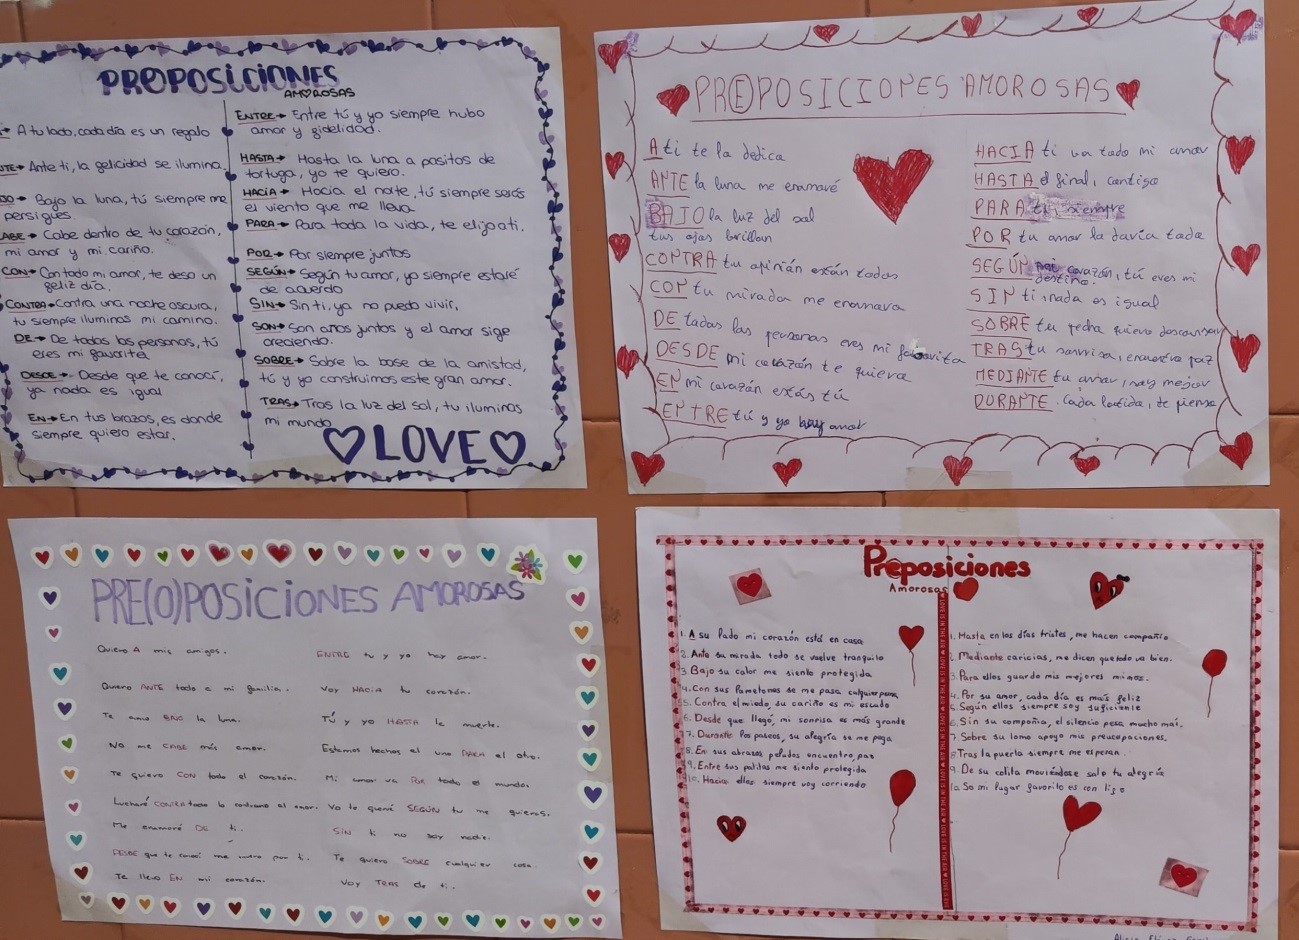 PREPOSICIONES
AMOROSAS
A tu lado, cada día es un regalo
Ante ti, la felicidad se ilumina.
Bajo la luna, tú siempre me
persigues
Cabe dentro de tu corazón,
mi amor y mi cariño.
CON→ Con todo mi amor, te deseo un
feliz día,
CONTRA→ Contra una noche oscura,
tu siempre iluminas mi camino.
DE→ De todas las personas, tú
eres mi favorita
DESDE→ Desde que te conocí,
ya nada es igual
EN→ En tus brazos, es donde
siempre quiero estar.
ENTRE→ Entre tú y yo siempre hubo
amor y fidelidad.
HASTA→ Hasta la luna a pasitos de
tortuga, yo te quiero.
HACIA→ Hacia el norte, tú siempre serás
el viento que me lleva
PARA→ Para toda la vida, te elijo a ti.
POR→ Por siempre juntos
SEGÚN→ Según tu amor, yo siempre estaré
de acuerdo
SIN→ Sin ti, ya no puedo vivir,
SON→ Son años juntos y el amor sige
creciendo.
SOBRE→ Sobre la base de la amistad,
tú y yo construimos este gran amor.
TRAS→ Tras la luz del sol, tu iluminas
mi mundo
LOVE
PR(E)POSICIONES AMOROSAS
A ti te la dedica
ANTE la luna me enamoré
BAJO la luz del sol
tus ojos brillan
CONTRA tu opinión están todos
CON tu mirada me enamora
DE todas las personas eres mi favorita
DESDE mi corazón te quiero
EN mi corazón estás tú
ENTRE tú y yo hay amor
HACIA ti va todo mi amor
HASTA el final, contigo
PARA ti, siempre
POR tu amor la daría toda
SEGÚN mi corazón, tú eres mi
destino.
SIN ti, nada es igual
SOBRE tu pecho quiero descansar
TRAS tu sonrisa, encuentro paz
MEDIANTE tu amor, soy mejor
DURANTE cada latido, te pienso
PRE(O)POSICIONES AMOROSAS
Quiero A mis amigos.
Quiero ANTE todo a mi familia.
Te amo BAJO la luna.
No me CABE más amor.
Te quiero CON todo el corazón.
Lucharé CONTRA todo lo contrario al amor.
Me enamoré DE ti.
DESDE que te conocí me muero por ti.
Te llevo EN mi corazón.
ENTRE tu y yo hay amor.
Voy HACIA tu corazón.
Tú y yo HASTA la muerte.
Estamos hechos el uno PARA el otro.
Mi amor va POR todo el mundo.
Yo te querré SEGÚN tu me quieras.
SIN ti no soy nadie.
Te quiero SOBRE cualquier cosa.
Voy TRAS de ti.
Preposiciones
Amorosas
1. A su lado mi corazón está en casa
2. Ante su mirada todo se vuelve tranquilo
3. Bajo su calor me siento protegida
4. Con sus lametones se me pasa cualquier pena
5. Contra el miedo, su cariño es mi escudo
6. Desde que llegó, mi sonrisa es más grande
7. Durante los paseos, su alegría se me pega
8. En sus abrazos peludos encuentro paz
9. Entre sus patitas me siento protegida
10. Hacia ellos siempre voy corriendo
1. Hasta en los días tristes, me hacen compañia
2. Mediante caricias, me dicen que todo va bien.
3. Para ellos guardo mis mejores mimos.
4. Por su amor, cada día es más feliz
5. Según ellos siempre soy suficiente
6. Sin su compañia, el silencio pesa mucho más.
7. Sobre su lomo apoyo mis preocupaciones.
8. Tras la puerta siempre me esperan
9. De su colita moviéndose sale tu alegría
10. So mi lugar favorito es con